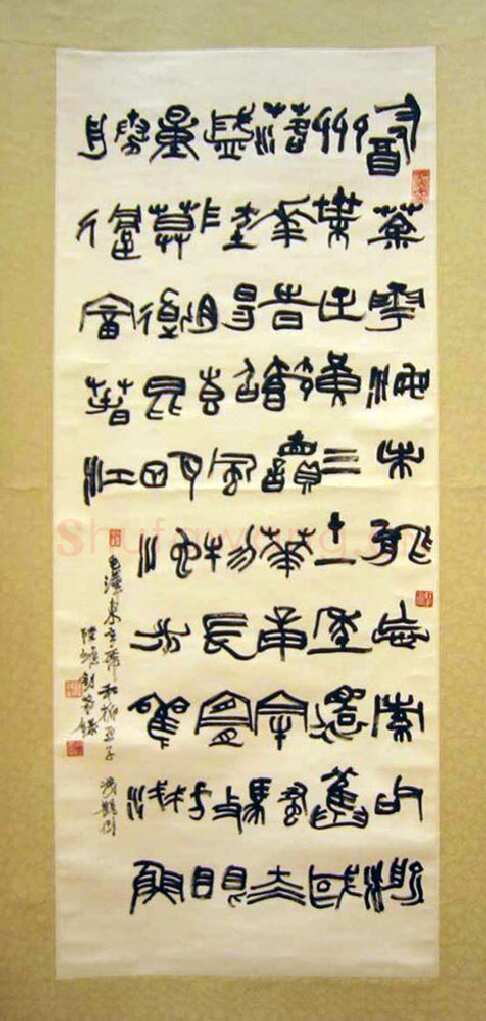 飲茶粵海未能忘索句渝
州葉正黃三十一年還舊國
落花時節讀華章牢騷太
盛防腸斷風物長宜放眼
量莫道昆明池水淺觀魚
勝過富春江
毛澤東主席和柳亞子
陸維釗